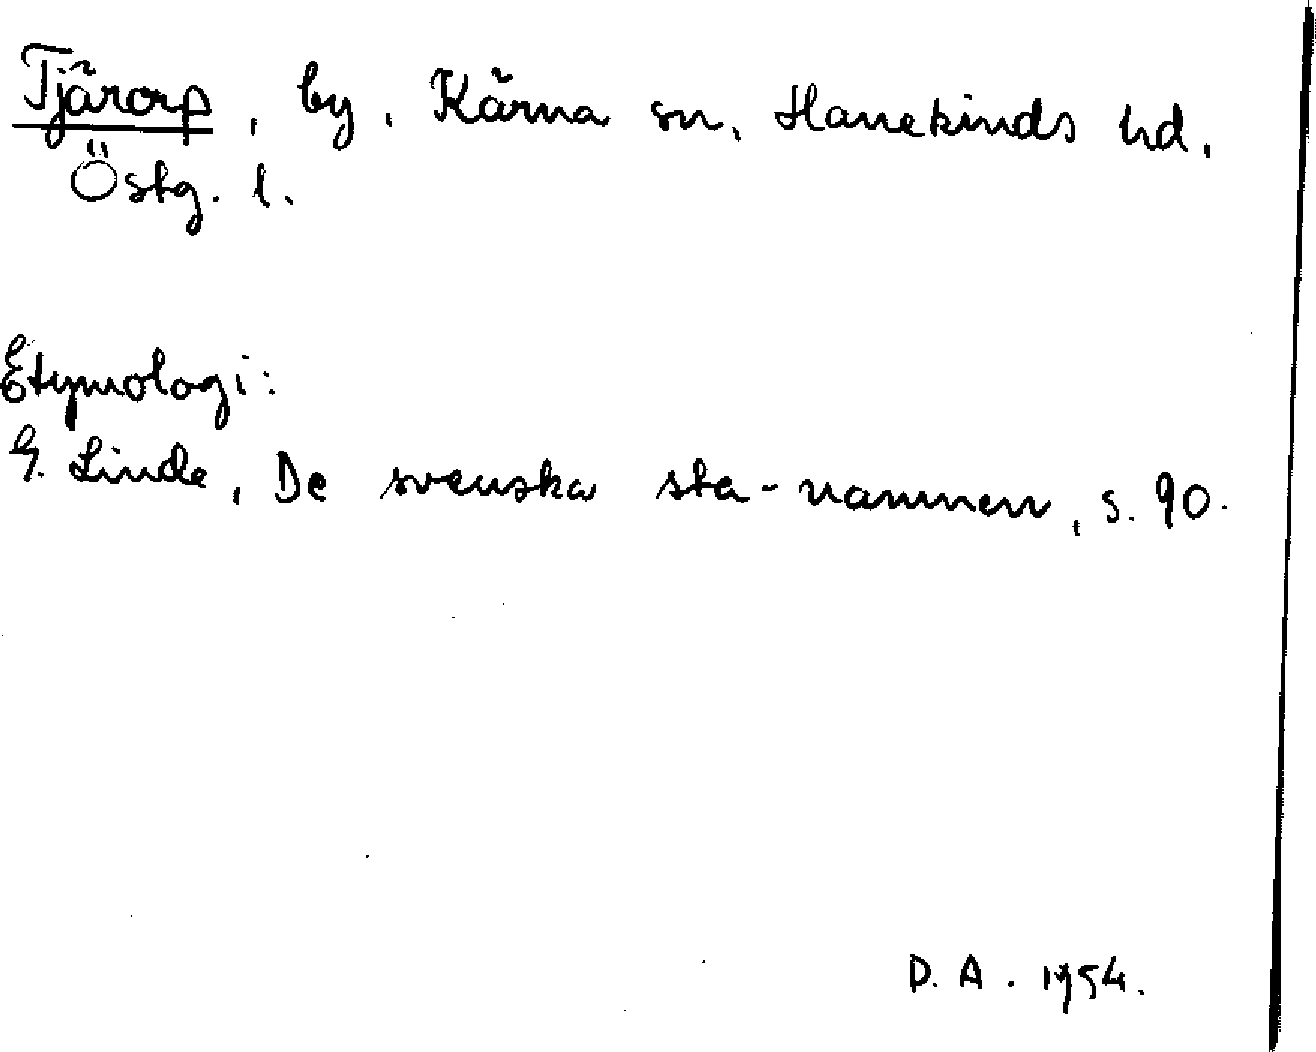 Tjärorp, by, Kärna sn, Hanekinds hd,
Östg. l.
Etymologi:
G. Linde, De svenska sta-namnen, s. 90.
D. A. 1954.